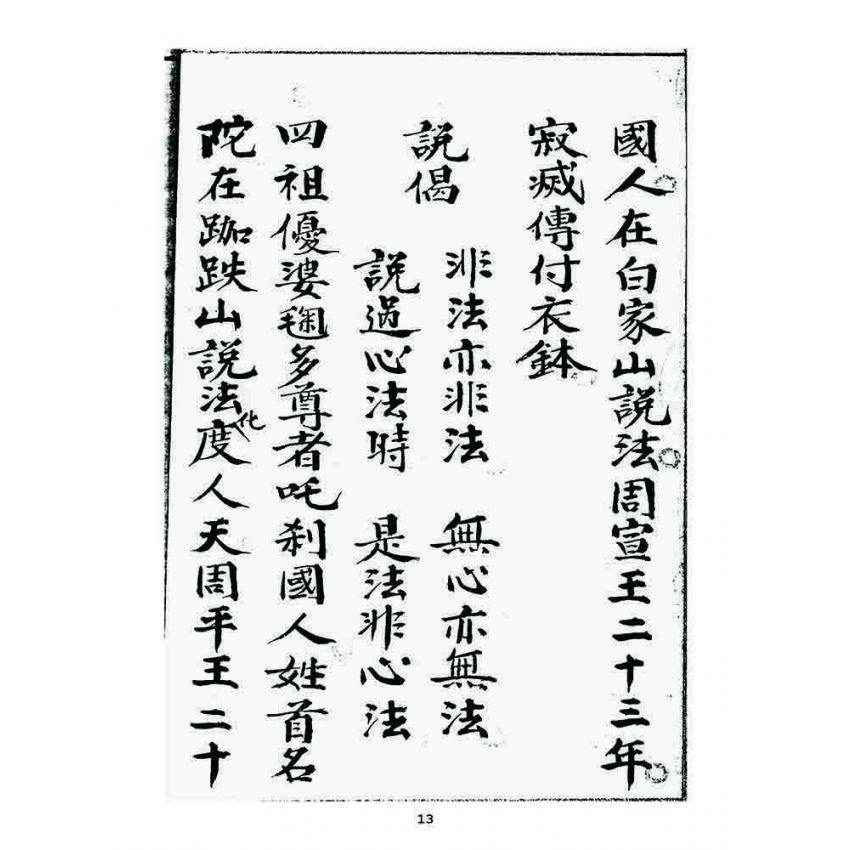 國人在白家山説法周宣王二十三年
寂滅傳付衣鉢
説偈
非法亦非法 無心亦無法
説過心法時 是法非心法
四祖優婆毱多尊者吒刹國人姓首名
陀在跏趺山説法化度人天周平王二十
13